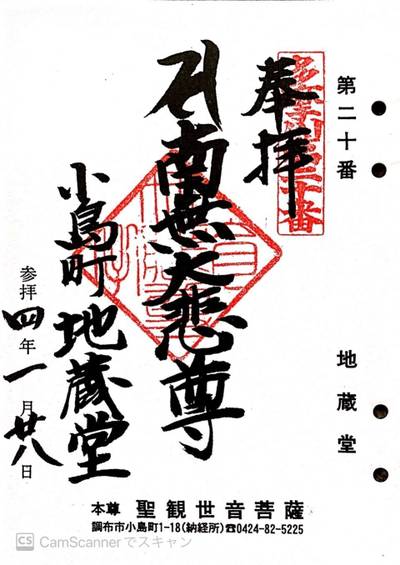 第二十番
地蔵堂
奉拝
南無大悲尊
小島町 地蔵堂
参拝 四年一月廿八日
本尊 聖観世音菩薩
調布市小島町1-18(納経所)☎0424-82-5225
CS CamScannerでスキャン